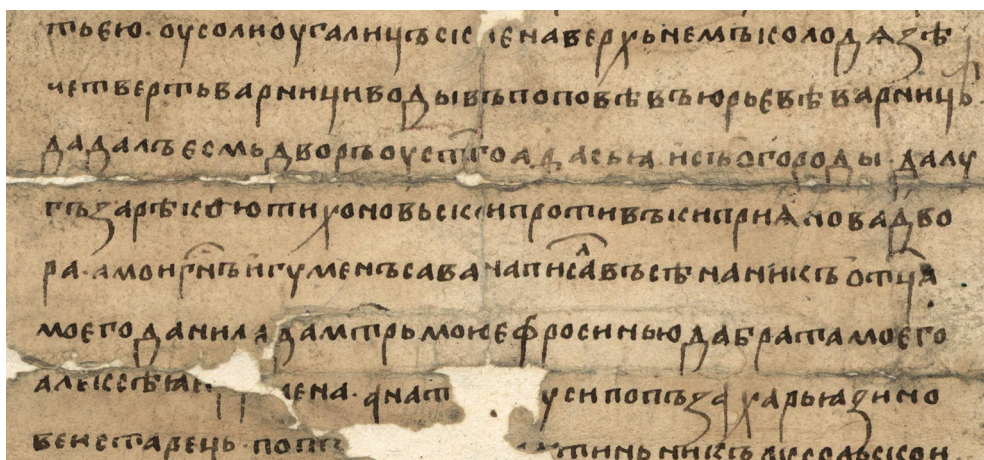 тьею· оу солноу галиць скіе на верхънемъ колодязѣ
четверть варници воды въ поповѣ въ юрьевѣ варниць·
да далъ есмь дворъ оу ст҃го а да сѣья и съ огороды· да лу
гъ за рѣкою тихоновьски противъ киприянова дво
ра· а мои гн҃ъ игуменъ сава написавъ сѣнаникъ отц҃а
моего данила да мт҃рь мою ефросинью да брата моего
алексѣя ена· а на т уси попъ захарья зино
веи старець· попъ тинь никъ лусольскои